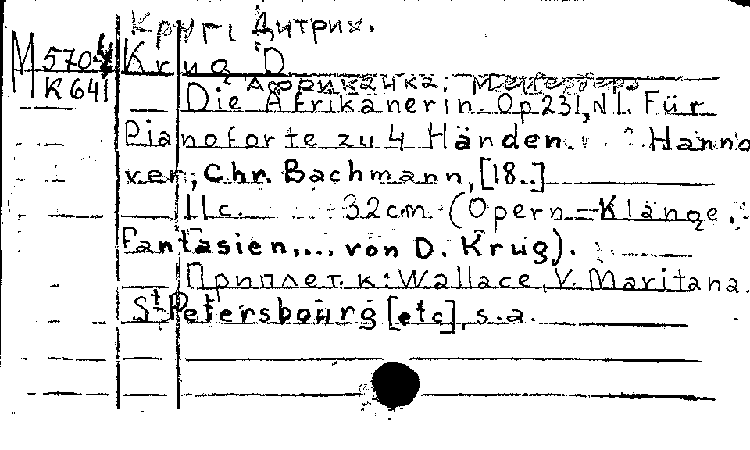 Круг, Дитрих.
M 570-4 Krug D
K 641 Африканка; Мейербер
Die Afrikanerin. Op 231, N 1. Für
Pianoforte zu 4 Händen. Hanno
ver, Chr. Bachmann, [18..]
11c. 32cm (Opern-Klänge.
Fantasien,... von D. Krug).
Приплет. к: Wallace, V. Maritana.
St Petersbourg [etc], s.a.